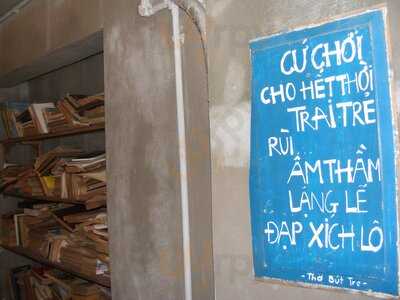 CỨ CHƠI
CHO HẾT THỜI
TRAI TRẺ
RÙI
ÂM THẦM
LẶNG LẼ
ĐẠP XÍCH LÔ
- Thơ Bút Tre -